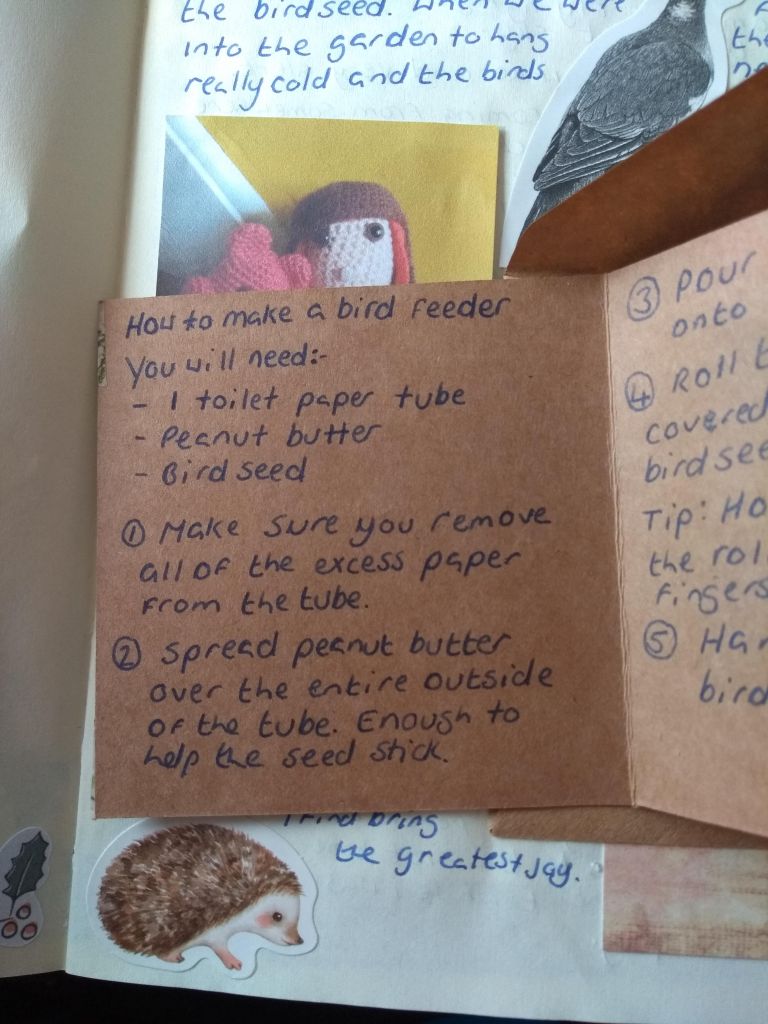 the birdseed. When we were
into the garden to hang
really cold and the birds
How to make a bird feeder
You will need:-
- 1 toilet paper tube
- Peanut butter
- Bird seed
① Make sure you remove
all of the excess paper
from the tube.
② Spread peanut butter
over the entire outside
of the tube. Enough to
help the seed stick.
③ Pour
onto
④ Roll
covered
Tip:
the
fingers
⑤
bird
I find bring
the greatest joy.